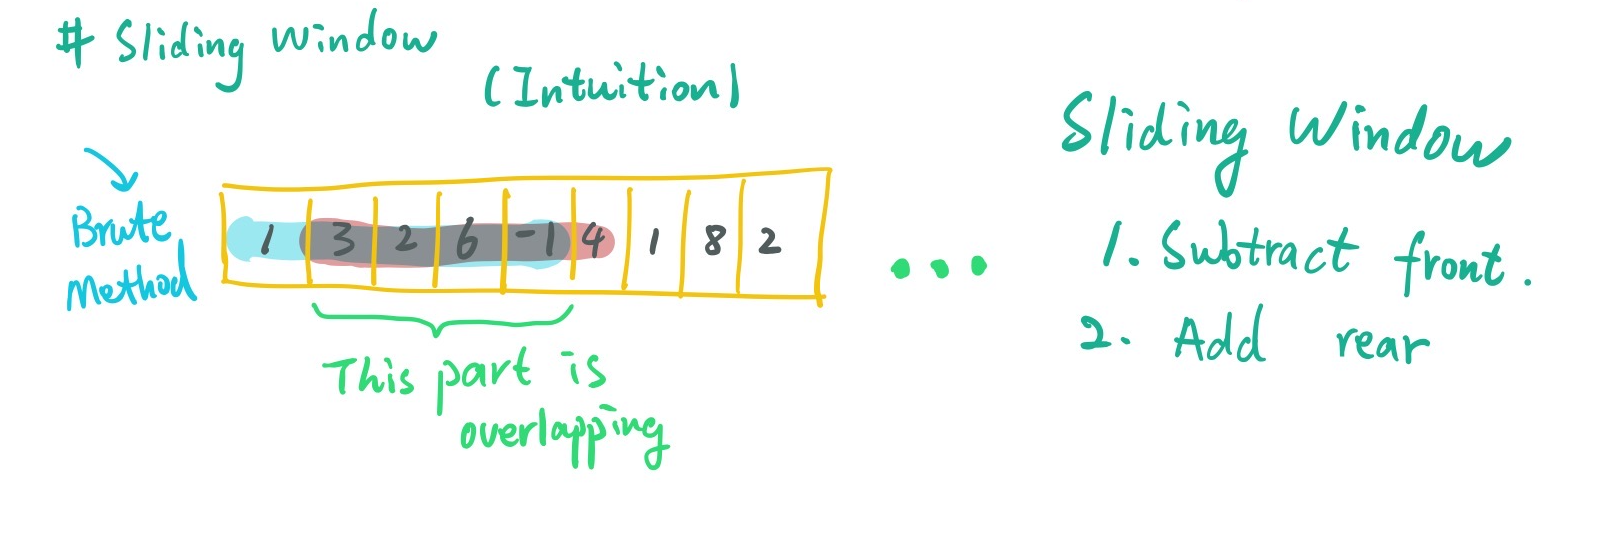 # Sliding Window
(Intuition)
Brute
Method
1 3 2 6 -1 4 1 8 2
This part is
overlapping
Sliding Window
1. Subtract front.
2. Add rear